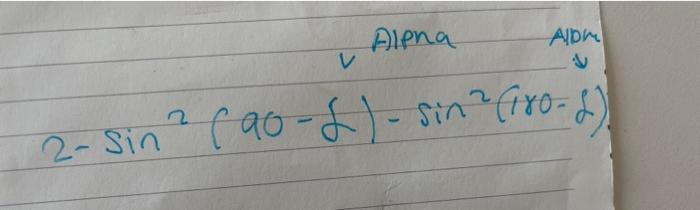 Alpha Alpha
2 - sin² (90 - α) - sin² (180 - α)